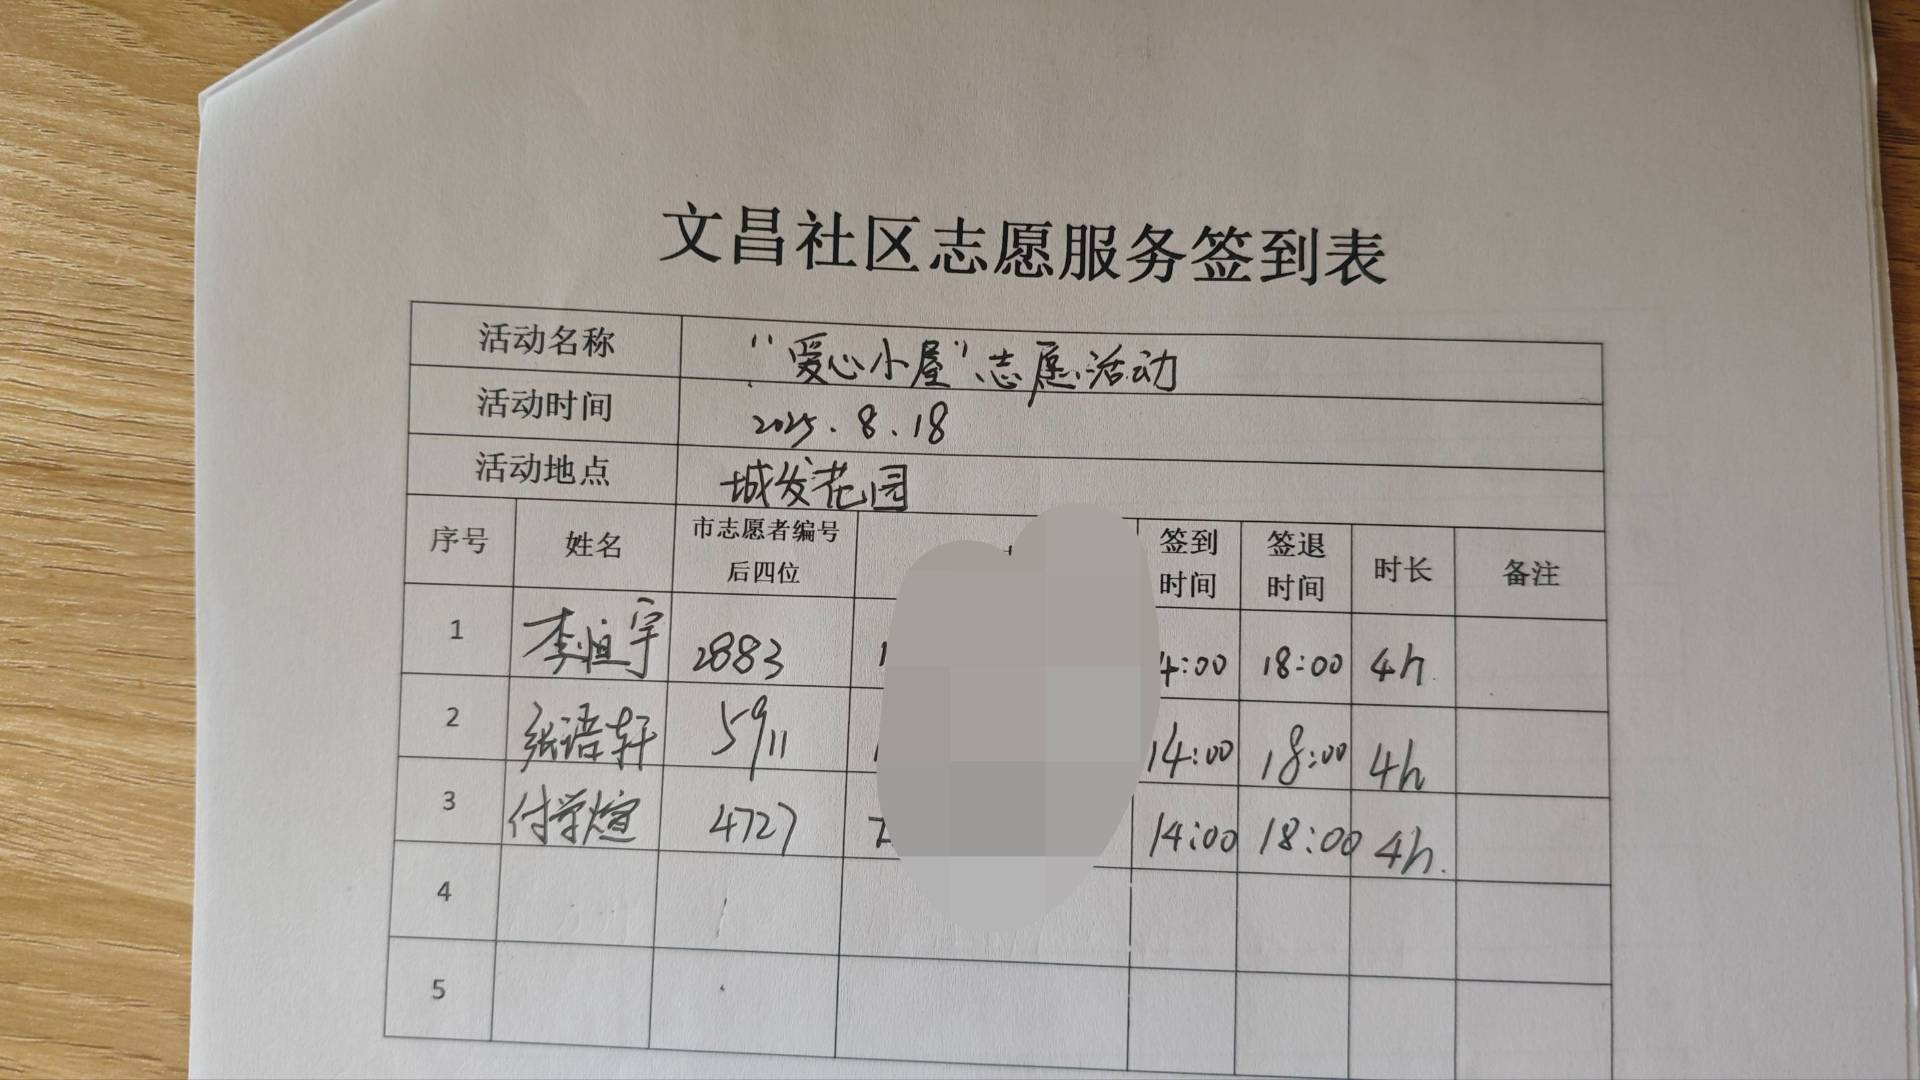 文昌社区志愿服务签到表
活动名称 “爱心小屋”志愿活动
活动时间 2025.8.18
活动地点 城发花园
序号 姓名 市志愿者编号后四位 签到时间 签退时间 时长 备注
1 李恒宇 2883 4:00 18:00 4h
2 张语轩 5911 14:00 18:00 4h
3 付学煊 4727 14:00 18:00 4h.
4
5